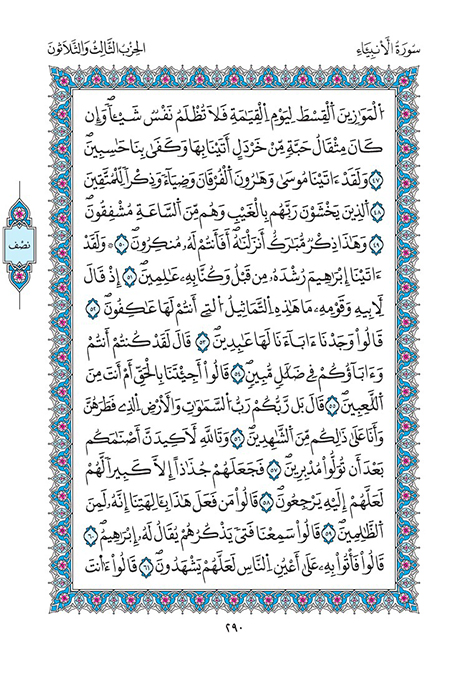 سُورَةُ الْأَنبِيَاءِ
الحِزْبُ الثَّالِثُ وَالثَّلَاثُونَ
اَ۬لْمَوَٰزِينَ اَ۬لْقِسْطَ لِيَوْمِ اِ۬لْقِيَٰمَةِ فَلَا تُظْلَمُ نَفْسٌ شَيْـٔاًۖ وَإِن
كَانَ مِثْقَالُ حَبَّةٍ مِّنْ خَرْدَلٍ أَتَيْنَا بِهَا وَكَفَىٰ بِنَا حَٰسِبِينَۖ
٤٧ وَلَقَدَ ءَاتَيْنَا مُوسَىٰ وَهَٰرُونَ اَ۬لْفُرْقَانَ وَضِيَآءً وَذِكْراً لِّلْمُتَّقِينَ
٤٨ اَ۬لذِينَ يَخْشَوْنَ رَبَّهُم بِالْغَيْبِ وَهُم مِّنَ اَ۬لسَّاعَةِ مُشْفِقُونَۖ
٤٩ وَهَٰذَا ذِكْرٌ مُّبَٰرَكٌ أَنزَلْنَٰهُۖ أَفَأَنتُمْ لَهُۥ مُنكِرُونَۖ ٥٠ ۞ وَلَقَدَ
ءَاتَيْنَا إِبْرَٰهِيمَ رُشْدَهُۥ مِن قَبْلُ وَكُنَّا بِهِۦ عَٰلِمِينَ ٥١ إِذْ قَالَ
لِأَبِيهِ وَقَوْمِهِۦ مَا هَٰذِهِ اِ۬لتَّمَاثِيلُ اُ۬لتِے أَنتُمْ لَهَا عَٰكِفُونَۖ ٥٢
قَالُوا۟ وَجَدْنَا ءَابَآءَنَا لَهَا عَٰبِدِينَۖ ٥٣ قَالَ لَقَدْ كُنتُمْ أَنتُمْ
وَءَابَآؤُكُمْ فِے ضَلَٰلٍ مُّبِينٍۖ ٥٤ قَالُوا۟ أَجِئْتَنَا بِالْحَقِّ أَمْ أَنتَ مِنَ
اَ۬للَّٰعِبِينَۖ ٥٥ قَالَ بَل رَّبُّكُمْ رَبُّ اُ۬لسَّمَٰوَٰتِ وَالْأَرْضِ اِ۬لذِے فَطَرَهُنَّ
وَأَنَا عَلَىٰ ذَٰلِكُم مِّنَ اَ۬لشَّٰهِدِينَۖ ٥٦ وَتَاللَّهِ لَأَكِيدَنَّ أَصْنَٰمَكُم
بَعْدَ أَن تُوَلُّوا۟ مُدْبِرِينَۖ ٥٧ فَجَعَلَهُمْ جُذَٰذاً إِلَّا كَبِيراً لَّهُمْ
لَعَلَّهُمْ إِلَيْهِ يَرْجِعُونَۖ ٥٨ قَالُوا۟ مَن فَعَلَ هَٰذَا بِـَٔالِهَتِنَا إِنَّهُۥ لَمِنَ
اَ۬لظَّٰلِمِينَۖ ٥٩ قَالُوا۟ سَمِعْنَا فَتًى يَذْكُرُهُمْ يُقَالُ لَهُۥ إِبْرَٰهِيمُۖ ٦٠
قَالُوا۟ فَأْتُوا۟ بِهِۦ عَلَىٰ أَعْيُنِ اِ۬لنَّاسِ لَعَلَّهُمْ يَشْهَدُونَۖ ٦١ قَالُوا۟ ءَآنتَ
نصف
٢٩٠